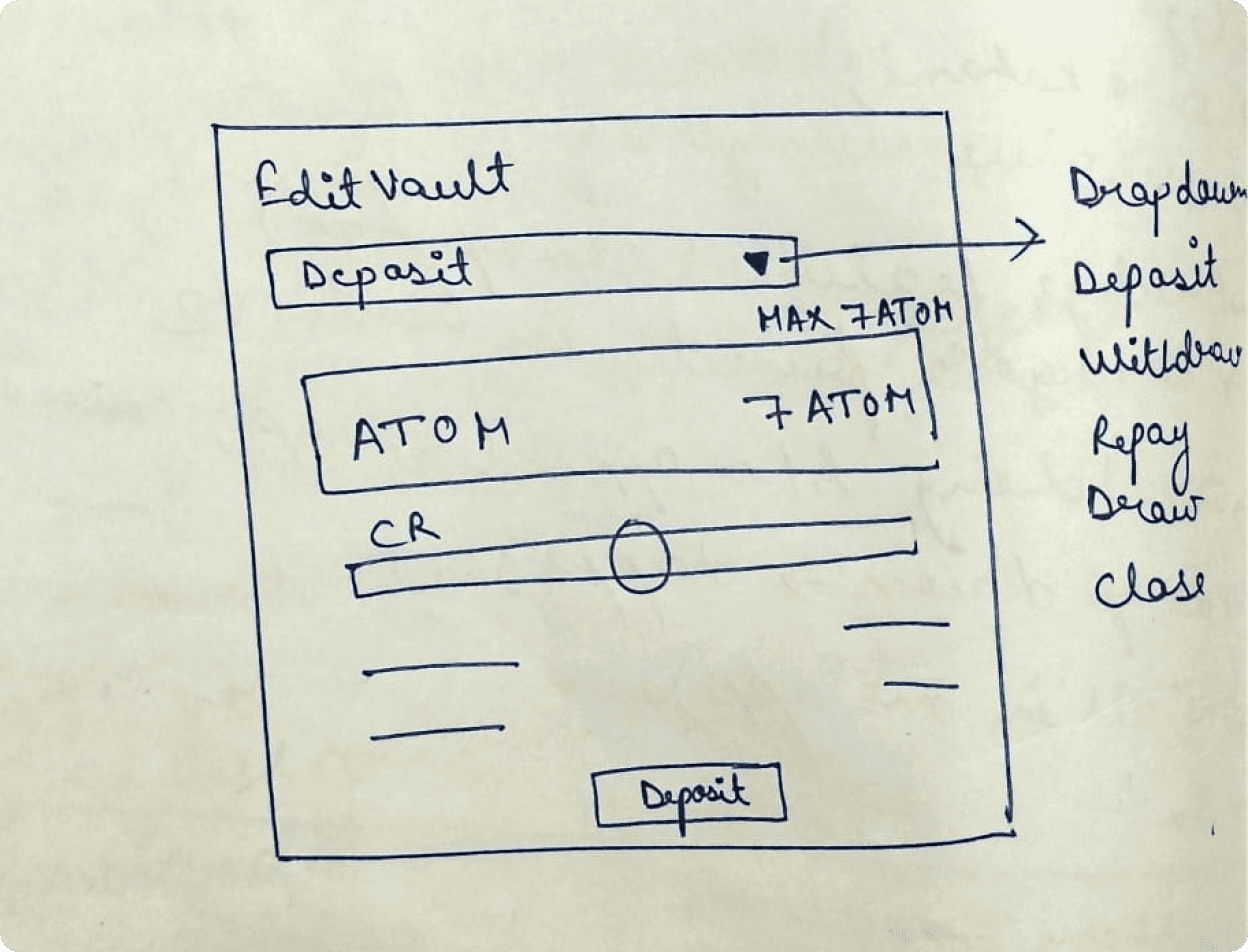 Edit Vault
Deposit
MAX 7 ATOM
ATOM 7 ATOM
CR
Deposit
Dropdown
Deposit
Withdraw
Repay
Draw
Close